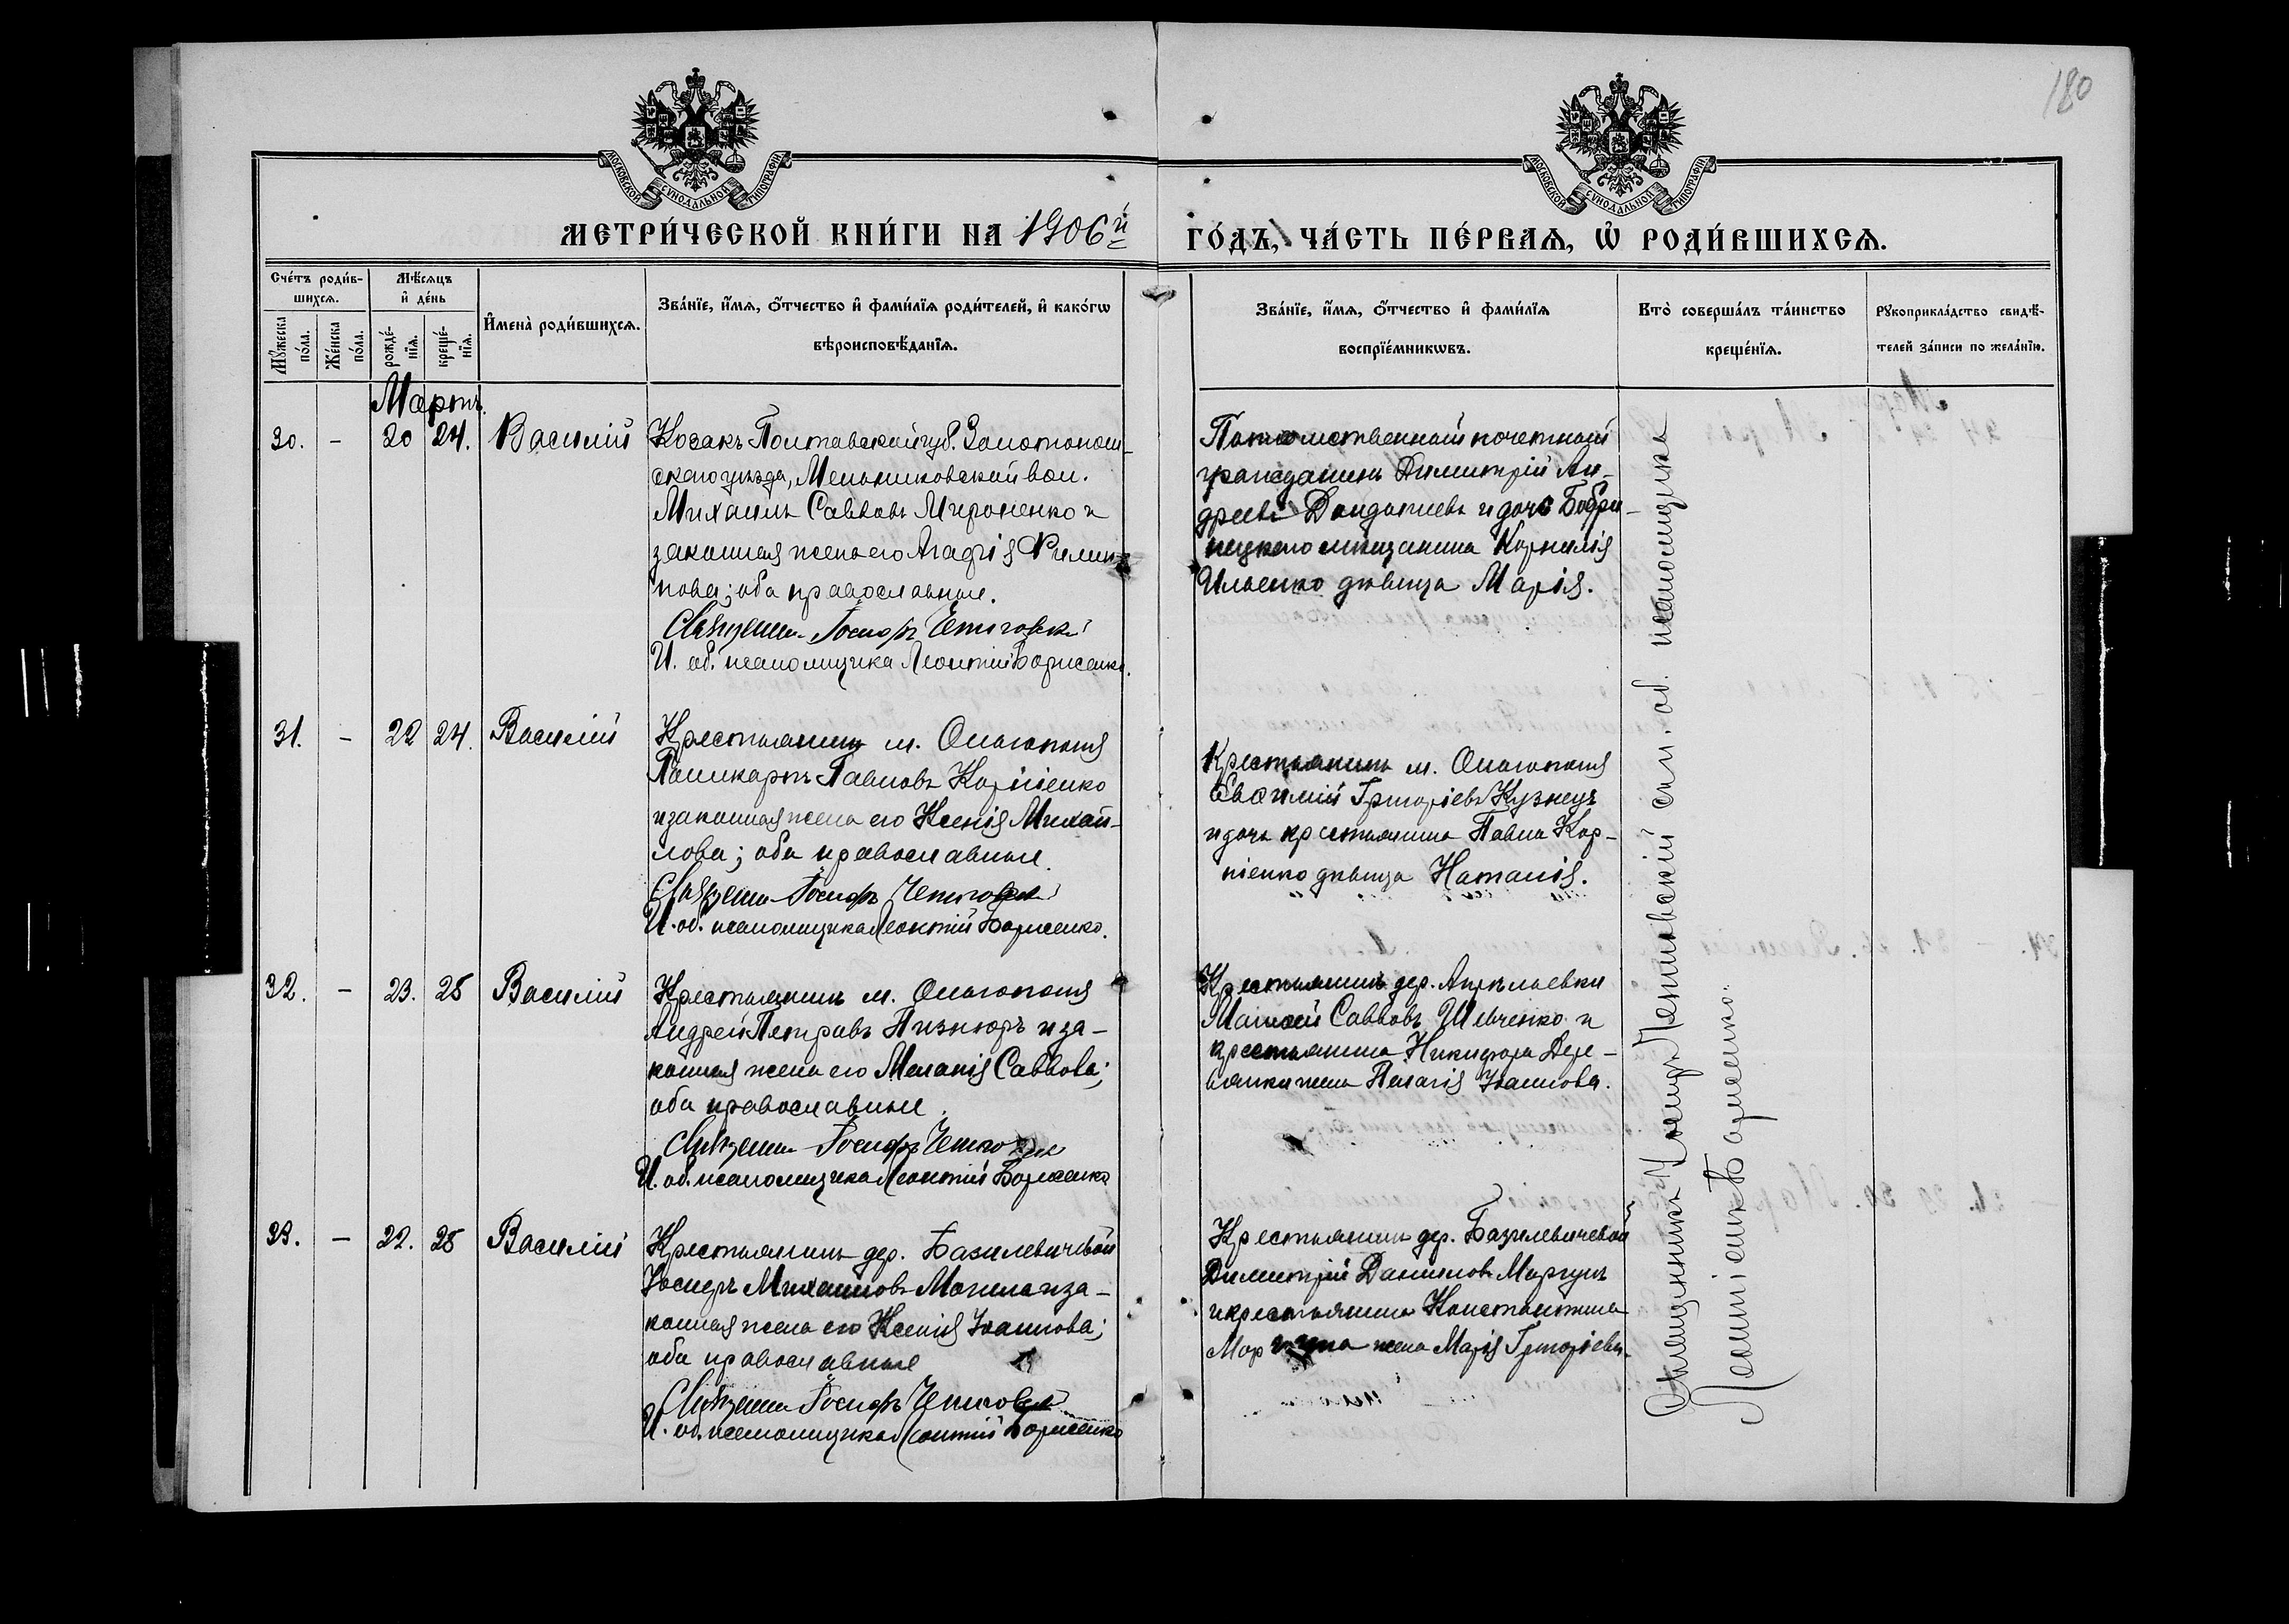 180
МОСКОВСКОЙ СУНОДАЛЬНОЙ ТИПОГРАФІИ
МОСКОВСКОЙ СУНОДАЛЬНОЙ ТИПОГРАФІИ
МЕТРИ́ЧЕСКОЙ КНИ́ГИ НА 1906й
ГО́ДЪ, ЧА́СТЬ ПЕ́РВАѦ, Ѡ҆ РОДИ́ВШИХСѦ.
Сче́тъ роди́в-
шихсѧ.
Мꙋжеска по́ла.
Же́нска по́ла.
Мѣ́сѧцъ
и҆ де́нь
рожде́-
нїѧ.
креще́-
нїѧ.
И҆мена̀ роди́вшихсѧ.
Зва́нїе, и҆́мѧ, ѻ҆́тчество и҆ фами́лїѧ роди́телей, и҆ како́гѡ
вѣроисповѣ́данїѧ.
Зва́нїе, и҆́мѧ, ѻ҆́тчество и҆ фами́лїѧ
воспрїе́мникѡвъ.
Кто̀ соверша́лъ та́инство
креще́нїѧ.
Рꙋкоприкла́дство свидѣ́-
телей за́писи по жела́нїю.
Мартъ.
30. – 20 24. Василій
Козакъ Полтавской губ. Золотонош-
скаго уѣзда, Мельниковской вол.
Михаилъ Саввовъ Мироненко и
законная жена его Агафія Филип-
пова; оба православные.
Священн. Іосифъ Четковскій
И. об. псаломщика Леонтій Борисенко.
Потомственный почетный
гражданинъ Димитрій Ан-
дреевъ Дондатіевъ и дочь Бобри-
нецкаго мѣщанина Корнилія
Ильенко дѣвица Марія.
31. – 22 24. Василій
Крестьянинъ м. Ольгополя
Поликарпъ Павловъ Корніенко
и законная жена его Ксенія Михай-
лова; оба православные.
Священн. Іосифъ Четковскій
И. об. псаломщика Леонтій Борисенко.
Крестьянинъ м. Ольгополя
Евфимій Григоріевъ Кузнецъ
и дочь крестьянина Павла Кор-
ніенко дѣвица Наталія.
32. – 23. 25 Василій
Крестьянинъ м. Ольгополя
Андрей Петровъ Пизнюръ и за-
конная жена его Меланія Саввова;
оба православные.
Священн. Іосифъ Четковскій
И. об. псаломщика Леонтій Борисенко
Крестьянинъ дер.
Саввовъ Шевченко и
крестьянина Никифора Дере-
вянки жена Пелагія Іоаннова.
33. – 22. 25 Василій
Крестьянинъ дер. Базилевичевой
Іосифъ Михаиловъ Могила и за-
конная жена его Ксенія Іоаннова;
оба православные
Священн. Іосифъ Четковскій
И. об. псаломщика Леонтій Борисенко
Крестьянинъ дер. Базилевичевой
Димитрій Даниловъ Моргунъ
и крестьянина Константина
Моргуна жена Марія Григоріева.
Священникъ Іосифъ Четковскій съ и. об. псаломщика
Леонтіемъ Борисенко.